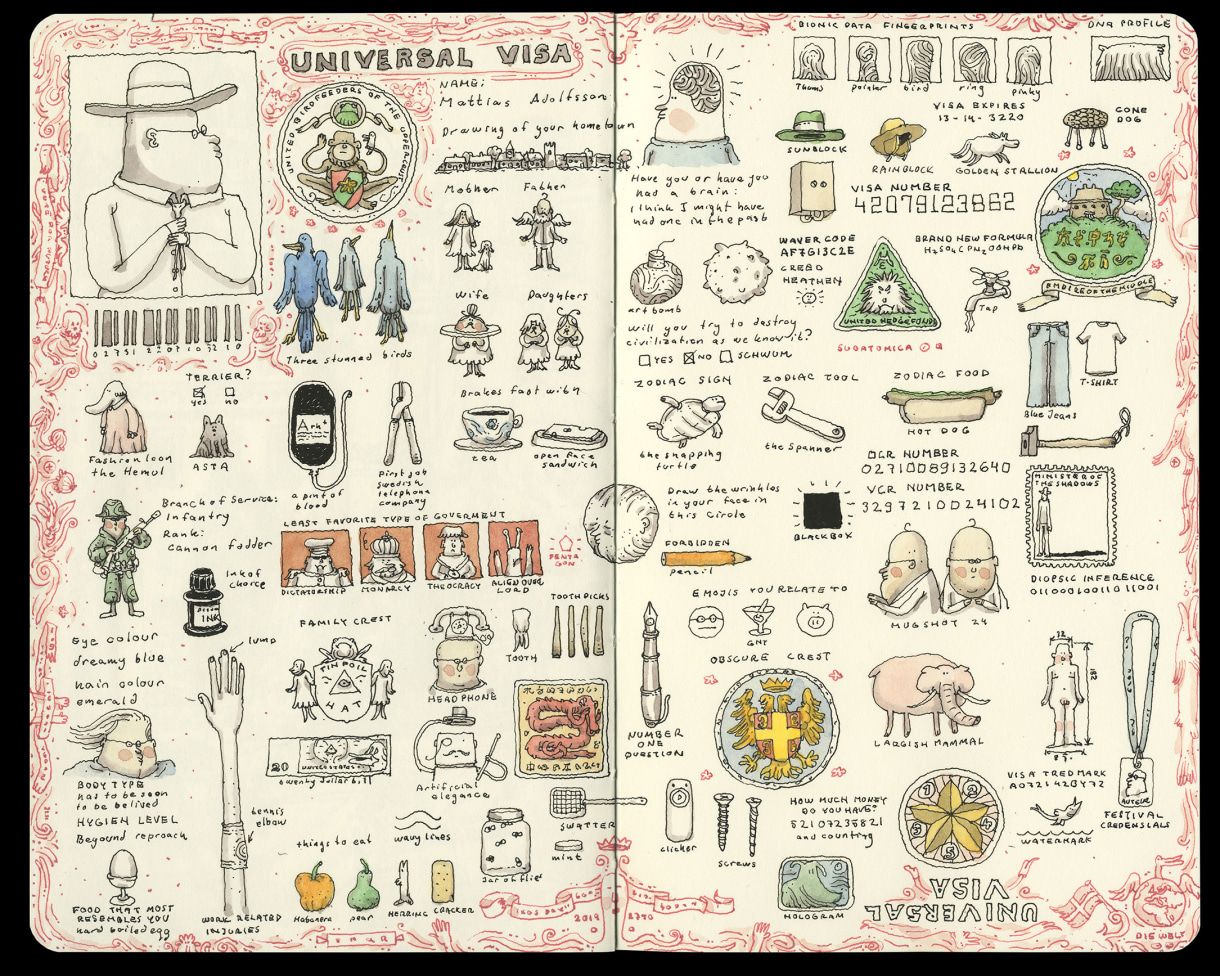 UNIVERSAL VISA
UNITED BIRDFEEDERS OF THE UPPERCUT
NAME:
Mattias Adolfsson
Drawing of your hometown
Mother
Father
Wife
Daughters
Three stunned birds
TERRIER?
yes
no
Fashion Icon
the Hemul
ASTA
a pint of
blood
First job
swedish
telephone
company
Brakes fast with
tea
open face
sandwich
Branch of Service:
Infantry
Rank:
Cannon fodder
Ink of
choice
INK
LEAST FAVORITE TYPE OF GOVERMENT
DICTATORSHIP
MONARCY
THEOCRACY
ALIEN OVER
LORD
PENTA
GON
Eye colour
dreamy blue
hair colour
emerald
lump
FAMILY CREST
TIN FOIL
HAT
HEADPHONE
TOOTH
TOOTH PICKS
BODY TYPE
has to be seen
to be belived
HYGIEN LEVEL
Beyound reproach
tennis
elbow
20
UNITED STATES
twenty dollar bill
Artificial
elegance
SWATTER
FOOD THAT MOST
RESEMBLES YOU
hard boiled egg
WORK RELATED
INJURIES
things to eat
Habanero
pear
HERRING
CRACKER
wavy lines
Jar of flies
mint
2019
BIONIC DATA FINGERPRINTS
DNA PROFILE
Thumb
pointer
bird
ring
pinky
Have you or have you
had a brain:
I think I might have
had one in the past
SUNBLOCK
VISA EXPIRES
13-14-3220
RAINBLOCK
GOLDEN STALLION
CONE
DOG
VISA NUMBER
42079123862
art bomb
WAVER CODE
AF7G13C2E
CREED
HEATHEN
UNITED HEDGEFUNDS
SUBATOMICA
BRAND NEW FORMULA
Tap
EMPIRE OF THE MIDDLE
will you try to destroy
civilization as we know it?
YES NO SCHWUM
ZODIAC SIGN
the snapping
turtle
ZODIAC TOOL
the Spanner
ZODIAC FOOD
HOT DOG
Blue Jeans
T-SHIRT
OCR NUMBER
02710089132640
VCR NUMBER
3297210024102
Draw the wrinkles
in your face in
this Circle
BLACK BOX
FORBIDDEN
pencil
MINISTER OF
THE SHADOWS
DIOPSIC INFERENCE
MUGSHOT 24
EMOJIS YOU RELATE TO
GNT
OBSCURE CREST
NUMBER
ONE
QUESTION
LARGISH MAMMAL
32
182
AUTEUR
FESTIVAL
CREDENSIALS
clicker
screws
HOW MUCH MONEY
DO YOU HAVE?
and counting
HOLOGRAM
VISA TREDMARK
WATERMARK
UNIVERSAL
VISA
DIE WELT